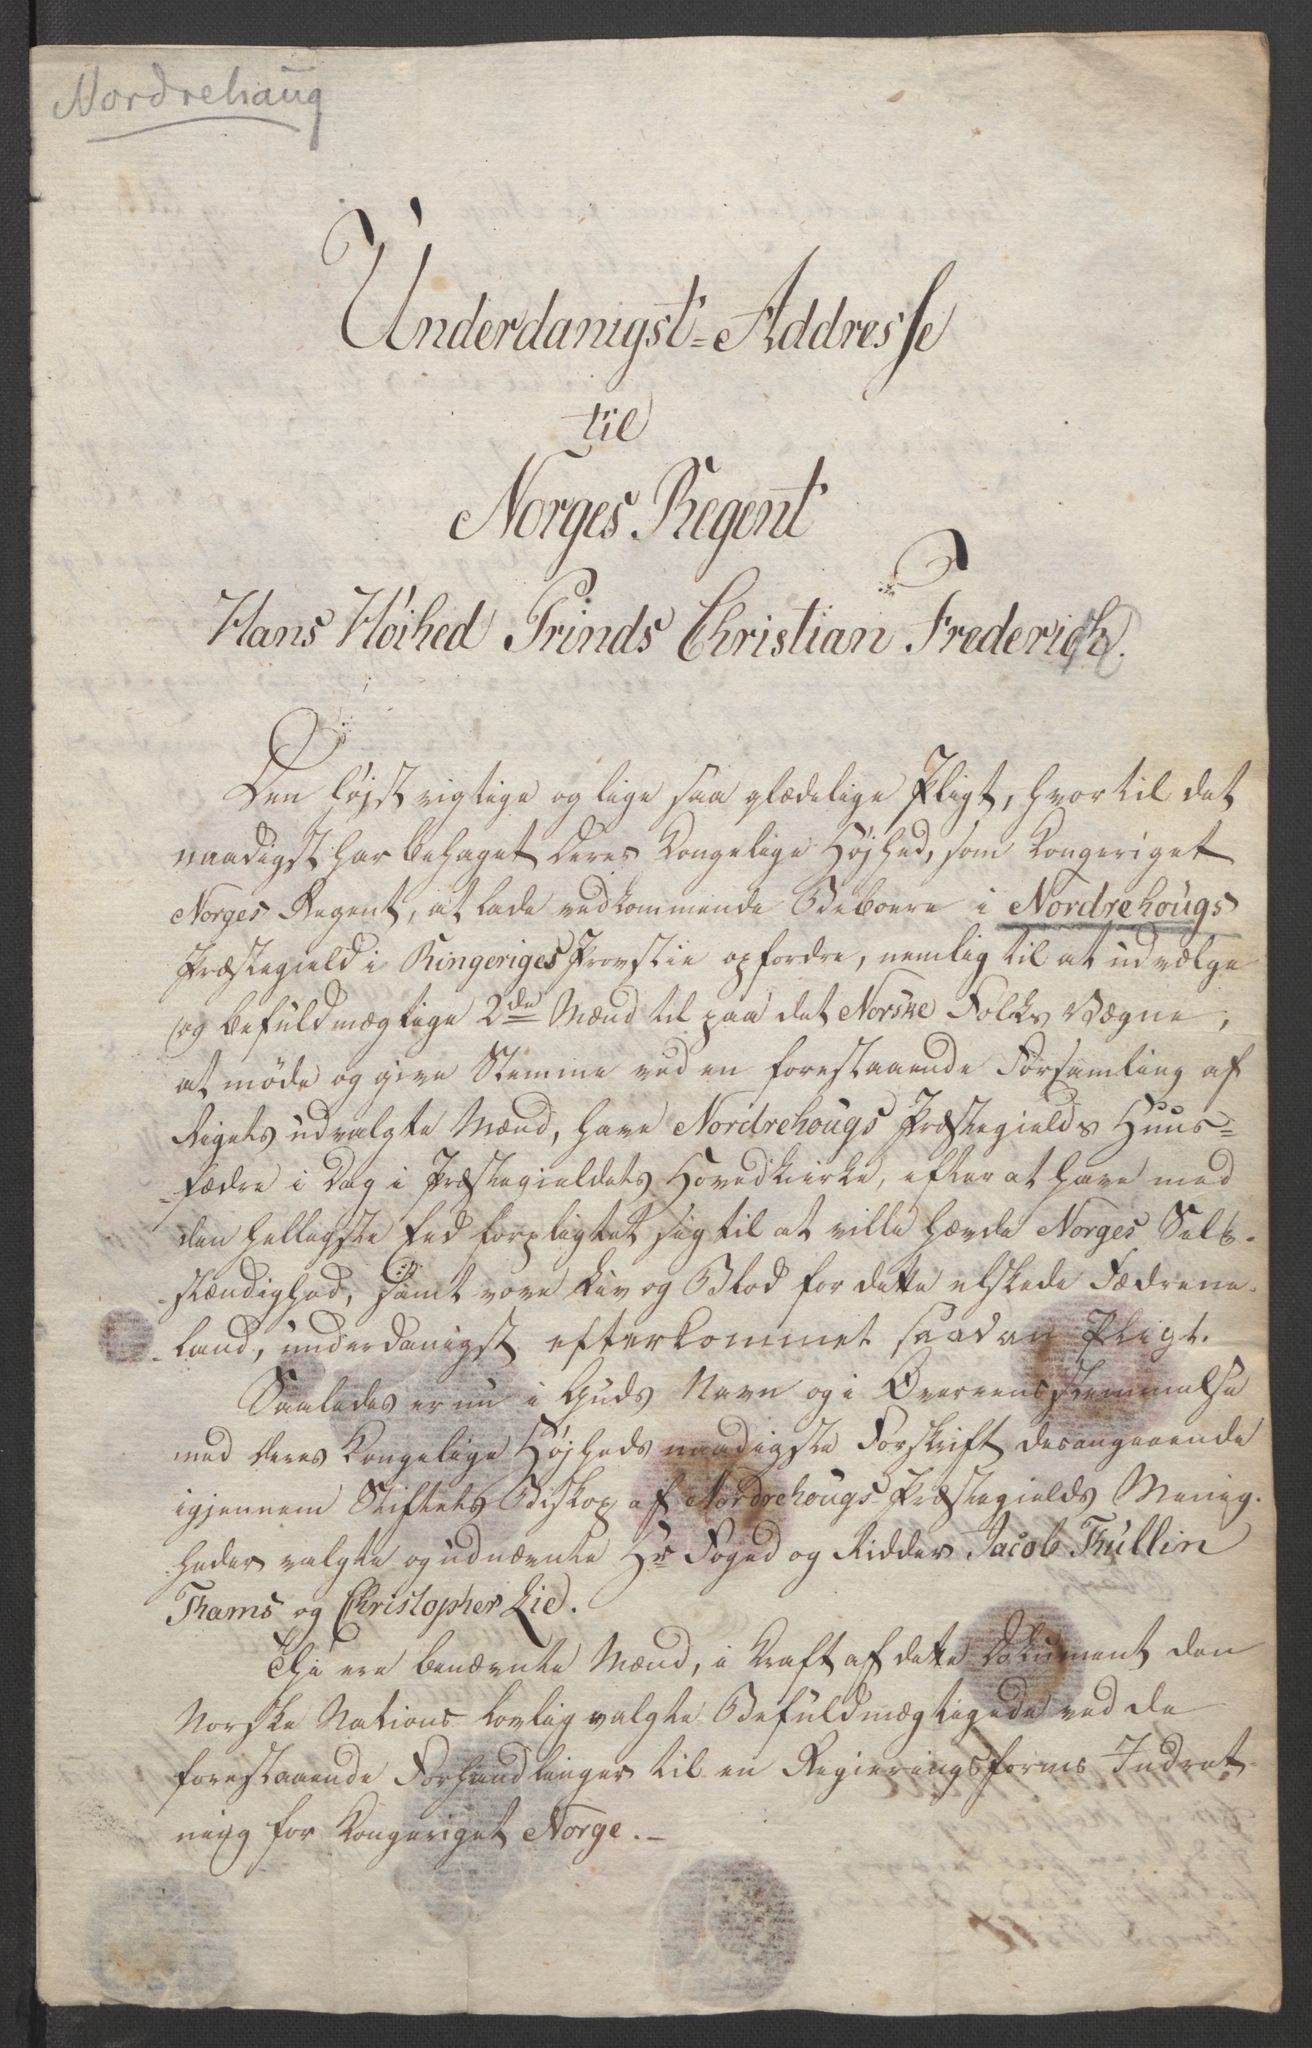 Nordrehaug
Underdanigst-Addresse
til
Norges Regent
Hans Höihed Prinds Christian Frederich.
Den højst vigtige og lige saa glædelige Pligt, hvortil det
naadigst har behaget Deres Kongelige Højhed, som Kongeriget
Norges Regent, at lade vedkommende Beboere i Nordrehougs
Præstegield i Ringeriges Provstie opfordre, nemlig til at udvælge
og befuldmægtige 2de Mænd til paa det Norske Folks Vægne,
at møde og give Stemme ved en forestaaende Forsamling af
Rigets udvalgte Mænd, have Nordrehougs Præstegields Huus-
-fædre i Dag i Præstegieldets Hovedkirke, efter at have med
den helligste Eed forpligtet sig til at ville hævde Norges Selv-
-stændighed, samt vove Liv og Blod for dette elskede Fædrene-
-land, underdanigst efterkommet saadan Pligt.
Saaledes er nu i Guds Navn og i Overeensstemmelse
med Deres Kongelige Højheds naadigste Forskrift desangaaende
igjennem Stiftets Biskop af Nordrehougs Præstegields Menig-
heder valgte og udnævnte Hr Foged og Ridder Jacob Thullin
Thams og Christopher Lie.
Thi ere benævnte Mænd, i Kraft af dette Document den
Norske Nations lovlig valgte Befuldmægtigede ved de
forestaaende Forhandlinger til en Regieringsforms Indret-
ning for Kongeriget Norge.-